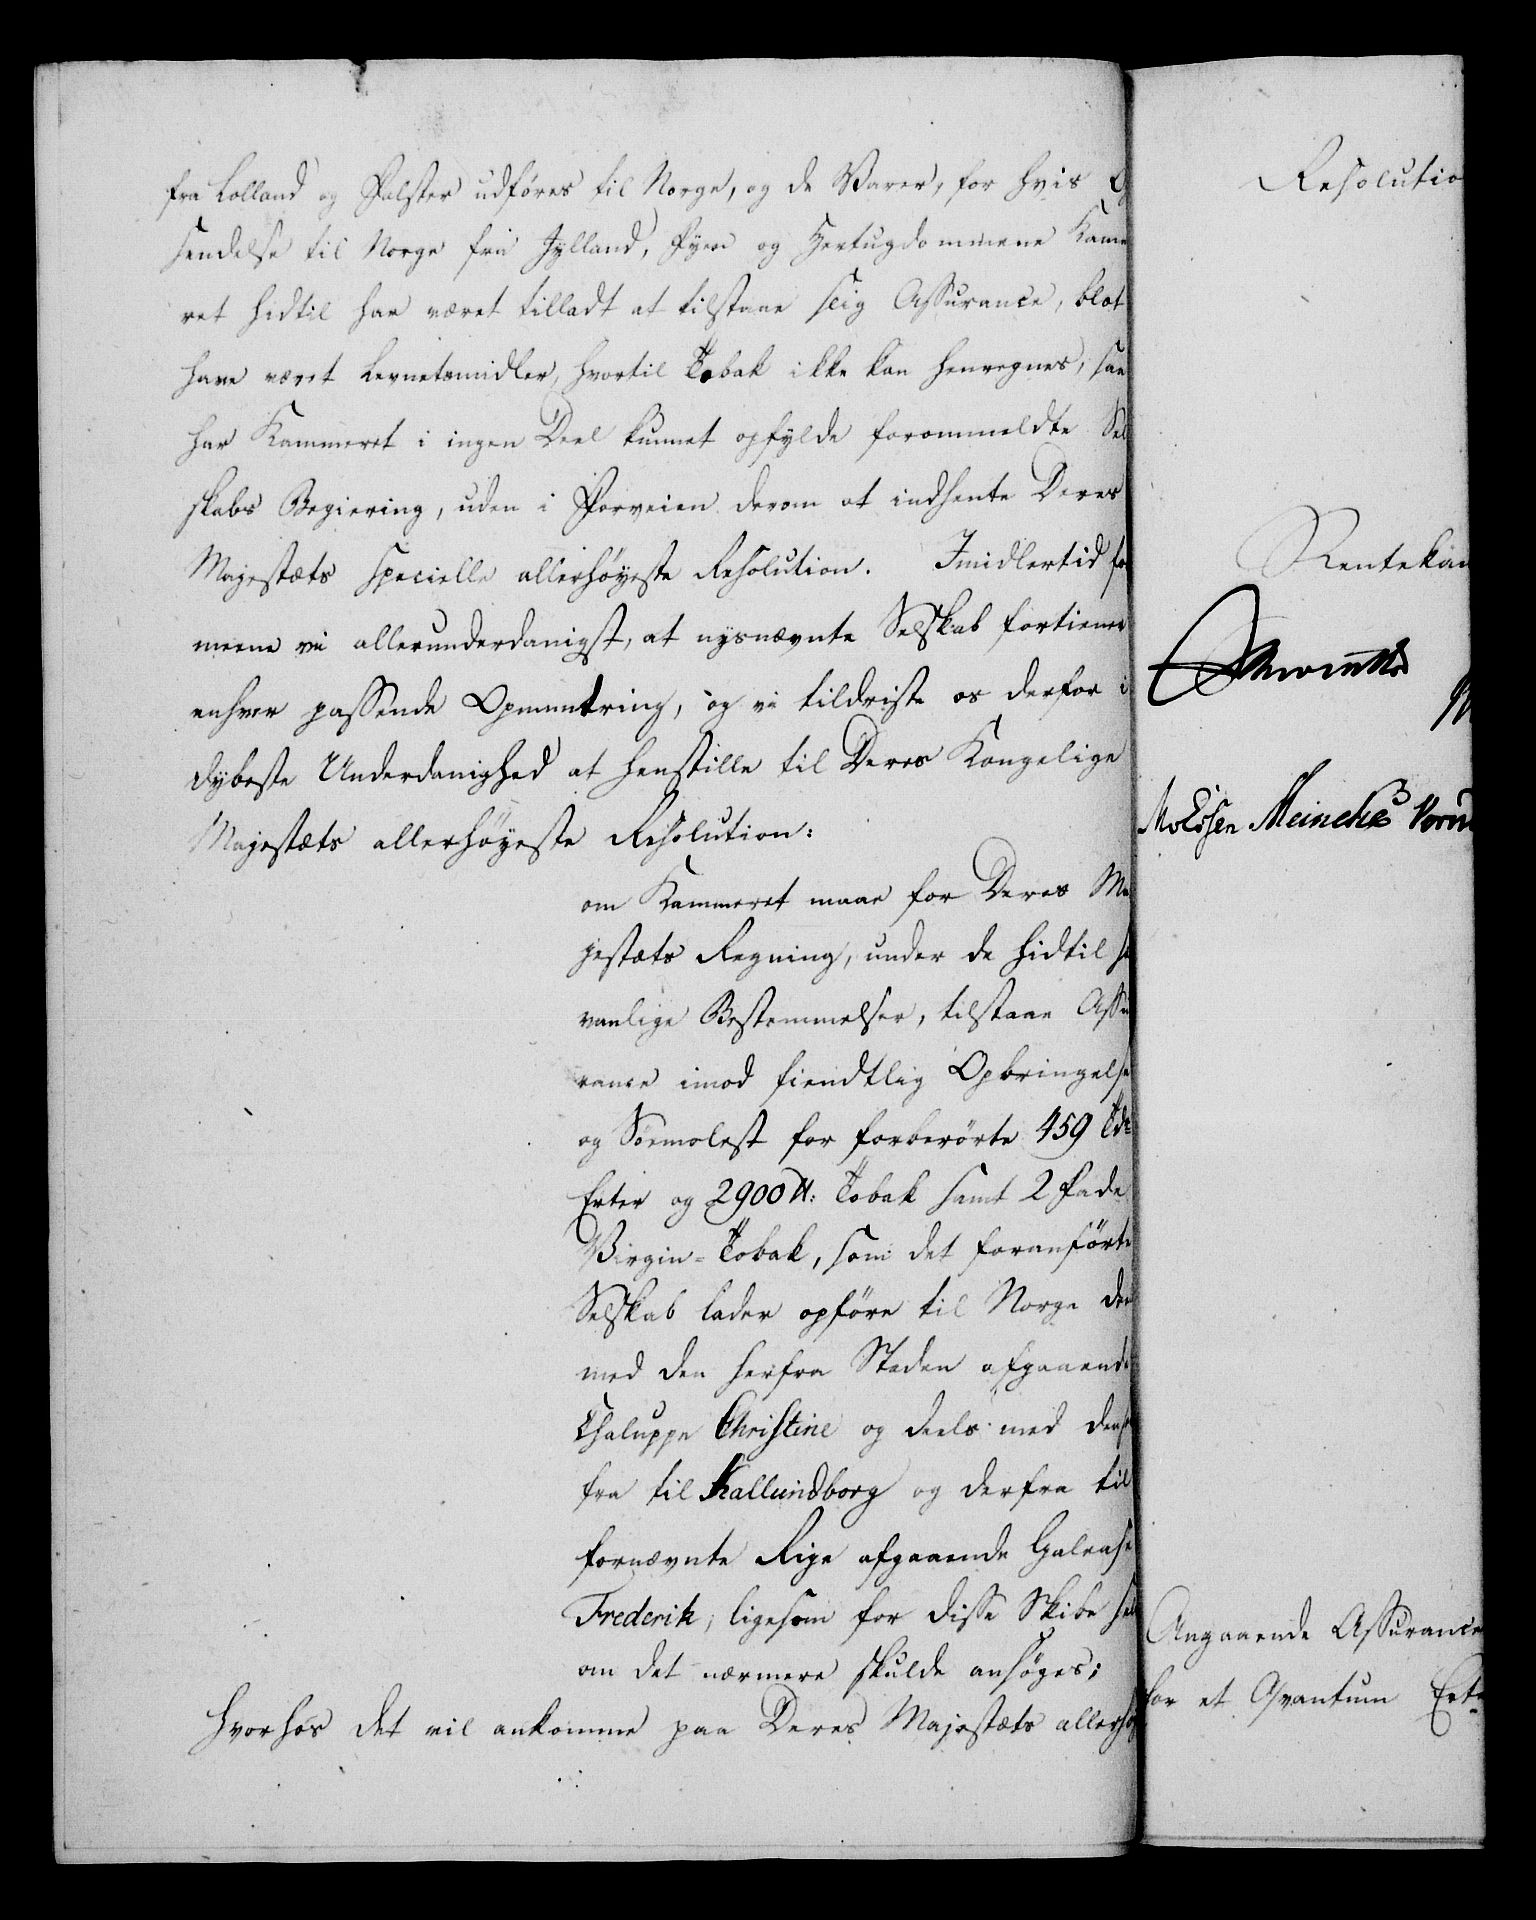 fra Lolland og Falster udføres til Norge, og de Varer, for hvis
sendelse til Norge fra Jylland, Fyen og Hertugdommene Kam
ret hidtil har været tilladt at tilstaae slig Assurance, blot
have været Levnetsmidler, hvortil Tobak ikke kan henregnes, saa
har Kammeret i ingen Deel kunnet opfylde forommeldte Sel
skabs Begiering, uden i Forveien derom at indhente Deres
Majestæts specielle allerhøyeste Resolution. Imidlertid for
meene vi allerunderdanigst, at nysnævnte Selskab fortiener
enhver passende Opmuntring, og vi tildriste os derfor i
dybeste Underdanighed at henstille til Deres Kongelige
Majestæts allerhøyeste Resolution:
om Kammeret maae for Deres Ma
jestæts Regning, under de hidtil sæd
vanlige Bestemmelser, tilstaae Assu
rance imod fiendtlig Opbringelse
og Søemolest for forberørte 459 Tdr
Erter og 2900 ℔: Tobak samt 2 Fade
Virgin-Tobak, som det foranførte
Selskab lader opføre til Norge deels
med den herfra Staden afgaaende
Chaluppe Christine og deels med den her
fra til Kallundborg og derfra til
fornævnte Rige afgaaende Galease
Frederik, ligesom for disse Skibe selv
om det nærmere skulde ansøges;
hvorhos det vil ankomme paa Deres Majestæts allerhøy
Resolutio
Rentekam
Meinche
Angaaende Assurance
for et Qvantum Erte